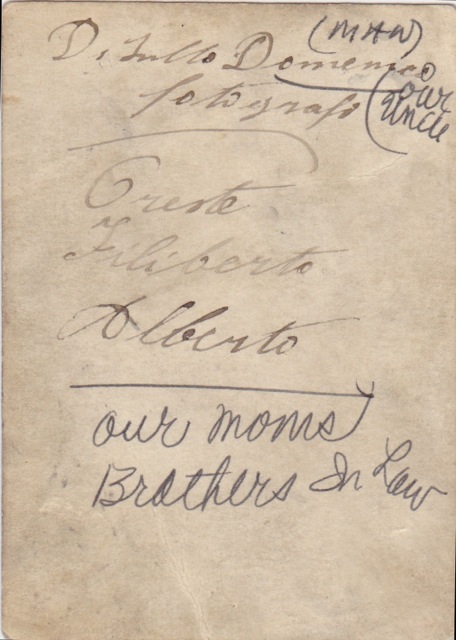 (MAN)
Di Tullo Domenico
(our
Uncle
fotografi
Oreste
Filiberto
Alberto
our moms
Brothers In Law